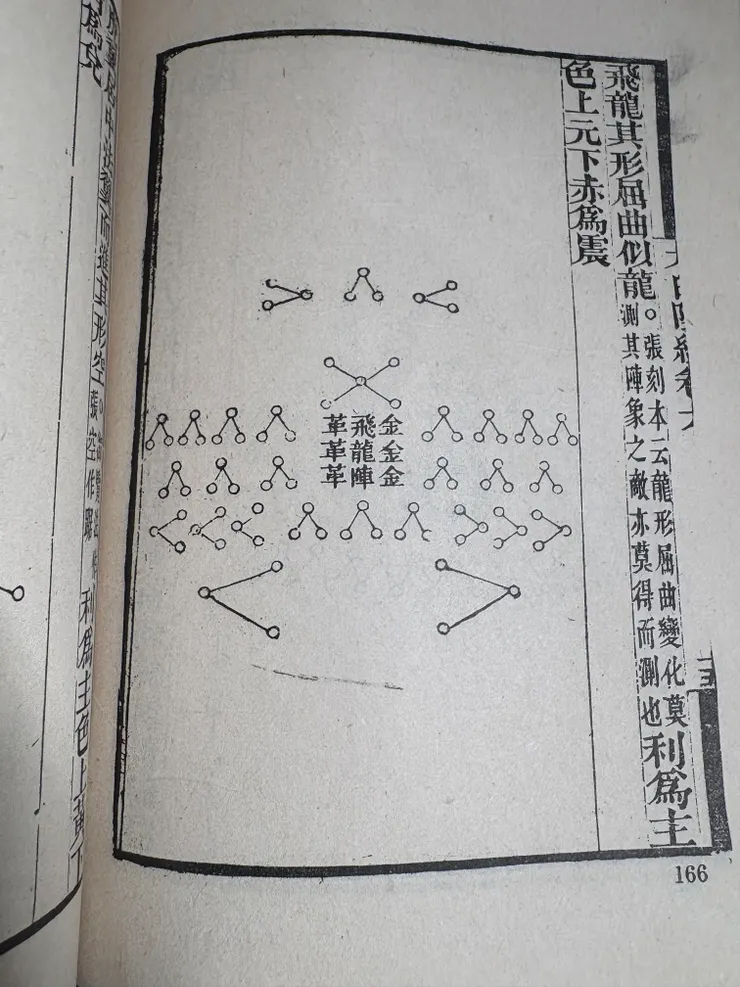 白陰經卷六
飛龍其形屈曲似龍。張刻本云龍形屈曲變化莫
測其陣象之敵亦莫得而測也利爲主
色上元下赤爲震
金金金
飛龍陣
革革革
166
而進其形空。
空作踞
利爲主色上黃下
爲兌